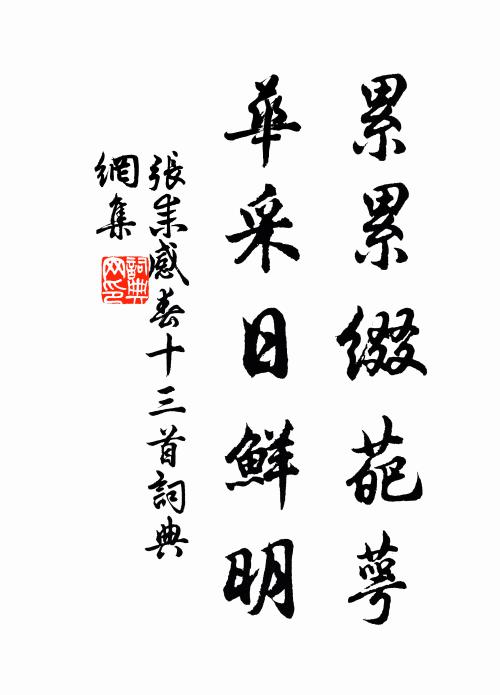 累累綴葩萼
華采日鮮明
張耒感春十三首詞典
網集
詞典網印